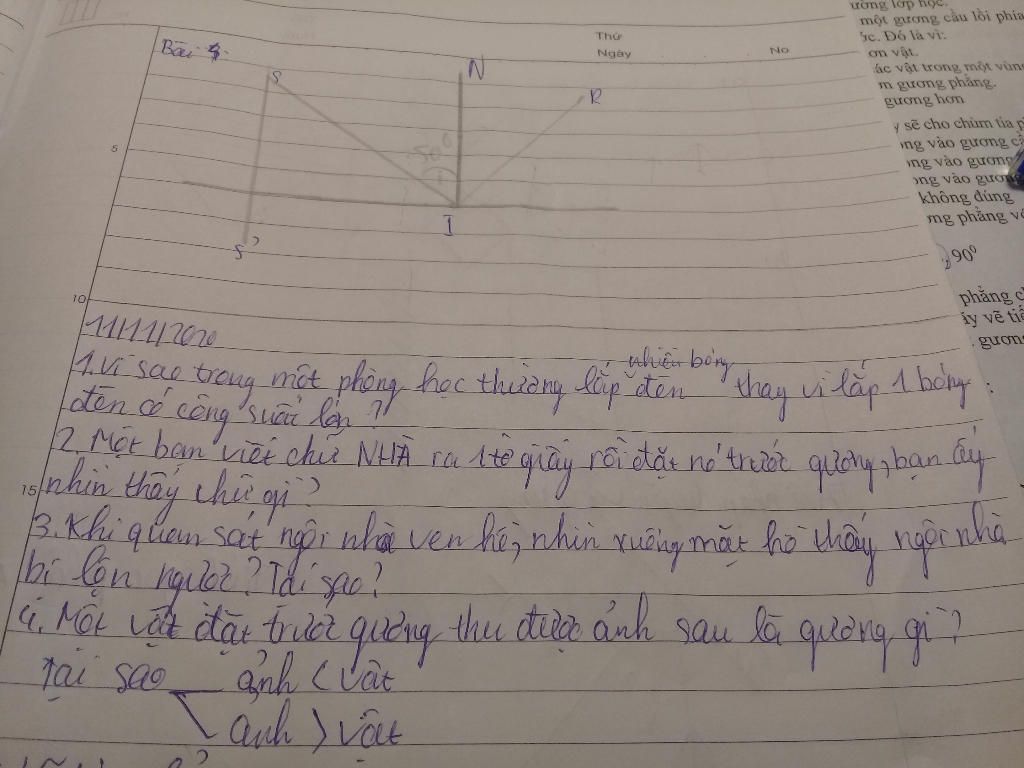 Thứ
Ngày
No
Bài
S
N
R
50⁰
I
S'
5
10
15
11/11/2020
1. Vì sao trong một phòng học thường lắp nhiều bóng đèn thay vì lắp 1 bóng
đèn có công suất lớn?
2. Một bạn viết chữ NHÀ ra 1 tờ giấy rồi đặt nó trước gương, bạn ấy
nhìn thấy chữ gì?
3. Khi quan sát ngôi nhà ven hồ, nhìn xuống mặt hồ thấy ngôi nhà
bị lộn ngược? Tại sao?
4. Một vật đặt trước gương thu được ảnh sau là gương gì?
Tại sao ảnh < vật
ảnh > vật
ường lớp học.
một gương cầu lồi phía
ớc. Đó là vì:
ơn vật.
ác vật trong một vùng
n gương phẳng.
gương hơn
y sẽ cho chùm tia p
ong vào gương cầ
ong vào gương
ong vào gương
không đúng
ơng phẳng vớ
90⁰
phẳng c
ãy vẽ ti
gương